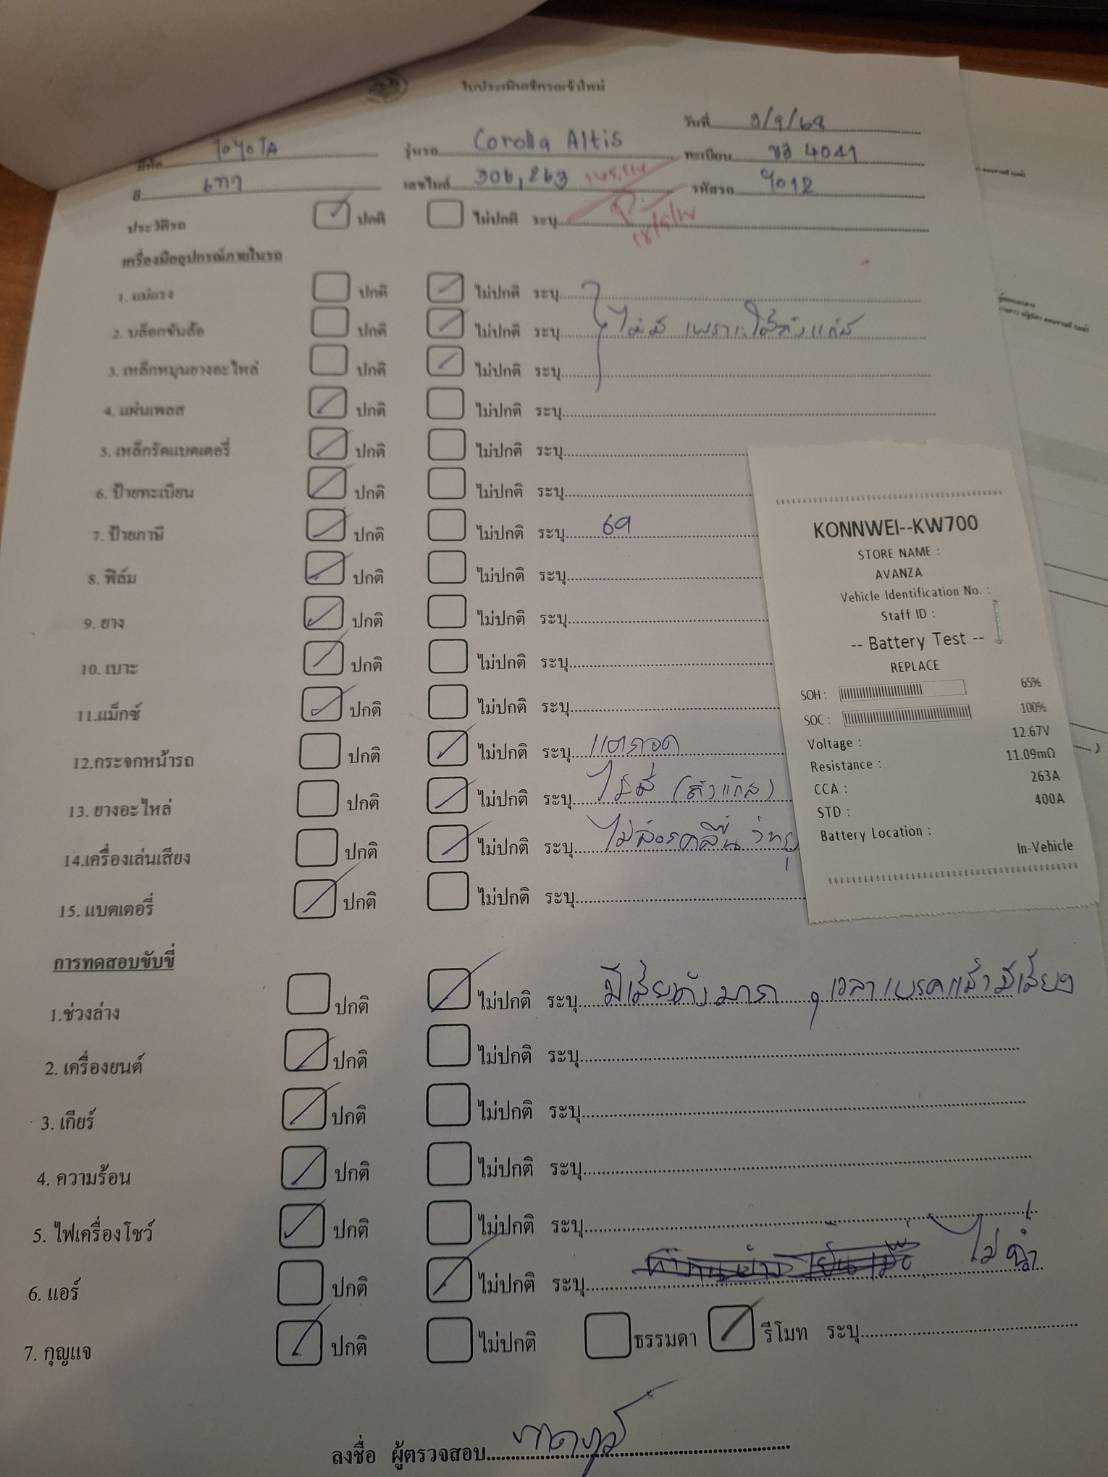 ใบประเมินสภาพรถเข้าใหม่
วันที่ 9/9/68
ยี่ห้อ TOYOTA รุ่นรถ Corolla Altis ทะเบียน 4041
สี เทา เลขไมล์ 306,263 รหัสรถ 9012
ประวัติรถ ปกติ ไม่ปกติ ระบุ
เครื่องมืออุปกรณ์ภายในรถ
1. แม่แรง ปกติ ไม่ปกติ ระบุ
2. บล็อกขันล้อ ปกติ ไม่ปกติ ระบุ ไม่มี เพราะใส่ถังแก๊ส
3. เหล็กหมุนยางอะไหล่ ปกติ ไม่ปกติ ระบุ
4. แผ่นเพลส ปกติ ไม่ปกติ ระบุ
5. เหล็กรัดแบตเตอรี่ ปกติ ไม่ปกติ ระบุ
6. ป้ายทะเบียน ปกติ ไม่ปกติ ระบุ
7. ป้ายภาษี ปกติ ไม่ปกติ ระบุ 69
8. ฟิล์ม ปกติ ไม่ปกติ ระบุ
9. ยาง ปกติ ไม่ปกติ ระบุ
10. เบาะ ปกติ ไม่ปกติ ระบุ
11.แม็กซ์ ปกติ ไม่ปกติ ระบุ
12.กระจกหน้ารถ ปกติ ไม่ปกติ ระบุ
13. ยางอะไหล่ ปกติ ไม่ปกติ ระบุ ไม่มี (ถังแก๊ส)
14.เครื่องเล่นเสียง ปกติ ไม่ปกติ ระบุ วิทยุ
15. แบตเตอรี่ ปกติ ไม่ปกติ ระบุ
การทดสอบขับขี่
1.ช่วงล่าง ปกติ ไม่ปกติ ระบุ มีเสียงดังมาก , เวลาเบรคแล้วมีเสียง
2. เครื่องยนต์ ปกติ ไม่ปกติ ระบุ
3. เกียร์ ปกติ ไม่ปกติ ระบุ
4. ความร้อน ปกติ ไม่ปกติ ระบุ
5. ไฟเครื่องโชว์ ปกติ ไม่ปกติ ระบุ
6. แอร์ ปกติ ไม่ปกติ ระบุ ไม่ฉ่ำ
7. กุญแจ ปกติ ไม่ปกติ ธรรมดา รีโมท ระบุ
ลงชื่อ ผู้ตรวจสอบ
KONNWEI--KW700
STORE NAME :
AVANZA
Vehicle Identification No. :
Staff ID :
-- Battery Test --
REPLACE
SOH : 65%
SOC : 100%
Voltage : 12.67V
Resistance : 11.09mΩ
CCA : 263A
STD : 400A
Battery Location :
In-Vehicle